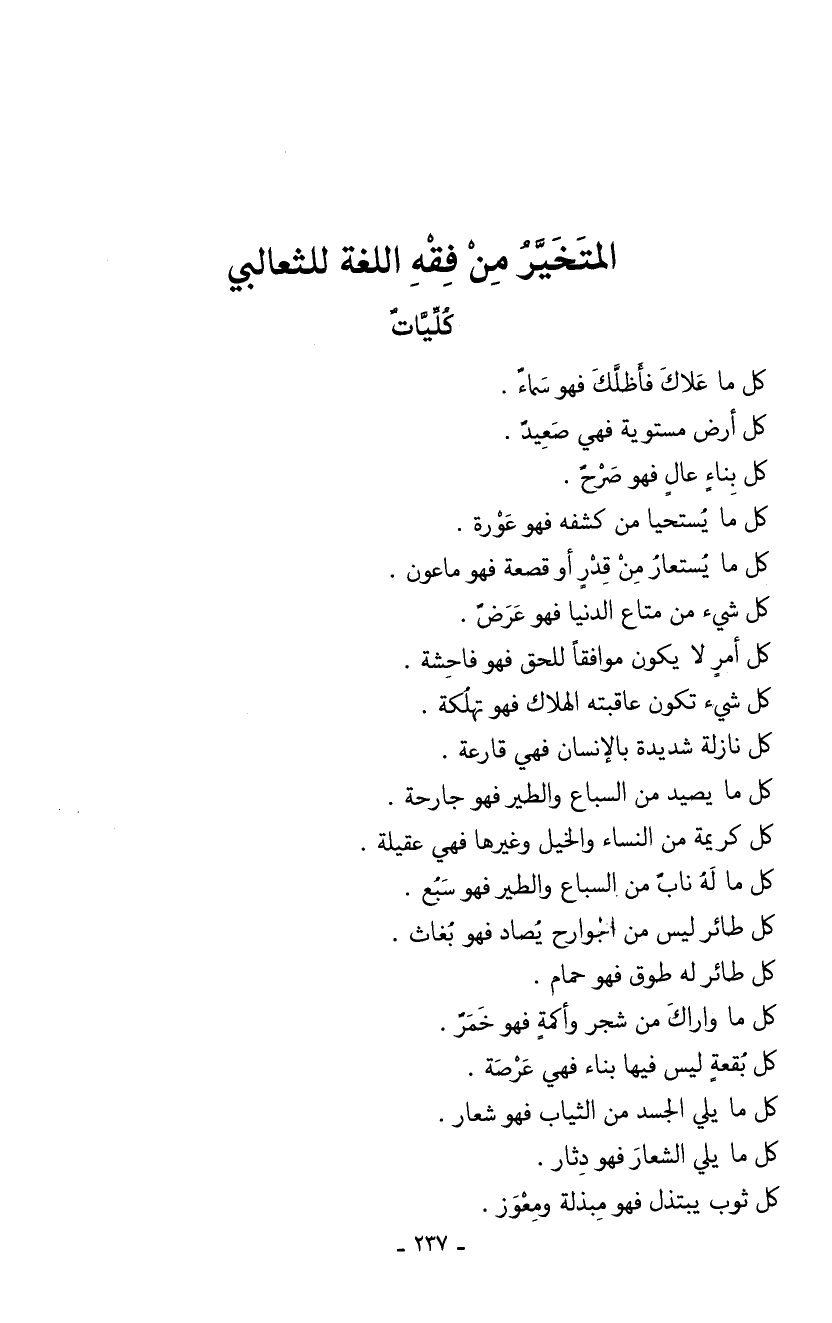 المتَخَيَّرُ مِنْ فِقْهِ اللغة للثعالبي
كُلِّيَّاتٌ
كل ما عَلاكَ فأَظلَّكَ فهو سَماءٌ .
كل أرض مستوية فهي صَعِيدٌ .
كل بِناءٍ عالٍ فهو صَرْحٌ .
كل ما يُستحيا من كشفه فهو عَوْرة .
كل ما يُستعارُ مِنْ قِدْرٍ أو قصعة فهو ماعون .
كل شيء من متاع الدنيا فهو عَرَضٌ .
كل أمرٍ لا يكون موافقاً للحق فهو فاحِشة .
كل شيء تكون عاقبته الهلاك فهو تهلُكة .
كل نازلة شديدة بالإنسان فهي قارعة .
كل ما يصيد من السباع والطير فهو جارحة .
كل كريمة من النساء والخيل وغيرها فهي عقيلة .
كل ما لَهُ نابٌ من السباع والطير فهو سَبُع .
كل طائر ليس من الجوارح يُصاد فهو بُغاث .
كل طائر له طوق فهو حمام .
كل ما واراكَ من شجر وأكمةٍ فهو خَمَرٌ .
كل بُقعةٍ ليس فيها بناء فهي عَرْصَة .
كل ما يلي الجسد من الثياب فهو شعار .
كل ما يلي الشعارَ فهو دِثار .
كل ثوب يبتذل فهو مِبذلة ومِعْوَز .
ـ ٢٣٧ ـ